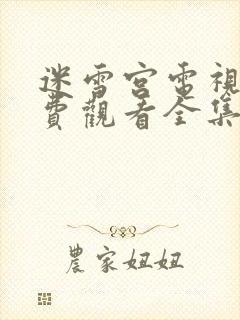 迷雪宮電視
費觀看全集
農家妞妞